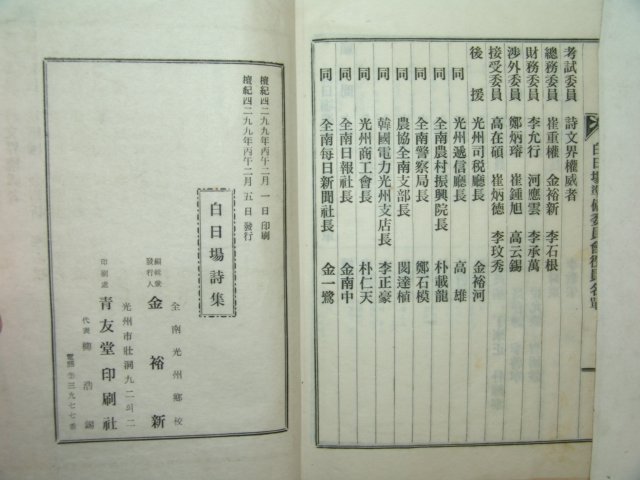 白日場準備委員會役員名單
考試委員 詩文界權威者
總務委員 崔重權 金裕新 李石根
財務委員 李允行 河應雲 李承萬
涉外委員 鄭炳瑢 崔鍾旭 高云錫
接受委員 高在碩 崔炳德 李玟秀
後援 光州司稅廳長 金裕河
同 光州遞信廳長 高雄
同 全南農村振興院長 朴載龍
同 全南警察局長 鄭石模
同 農協全南支部長 閔達植
同 韓國電力光州支店長 李正豪
同 光州商工會長 朴仁天
同 全南日報社長 金南中
同 全南每日新聞社長 金一鷺
檀紀四二九九年丙午二月一日印刷
檀紀四二九九年丙午二月五日發行
白日場詩集
全南光州鄕校
編輯兼發行人 金裕新
光州市壯洞九二의二
印刷處 靑友堂印刷社
代表 楊浩錫
電話②三九七七番